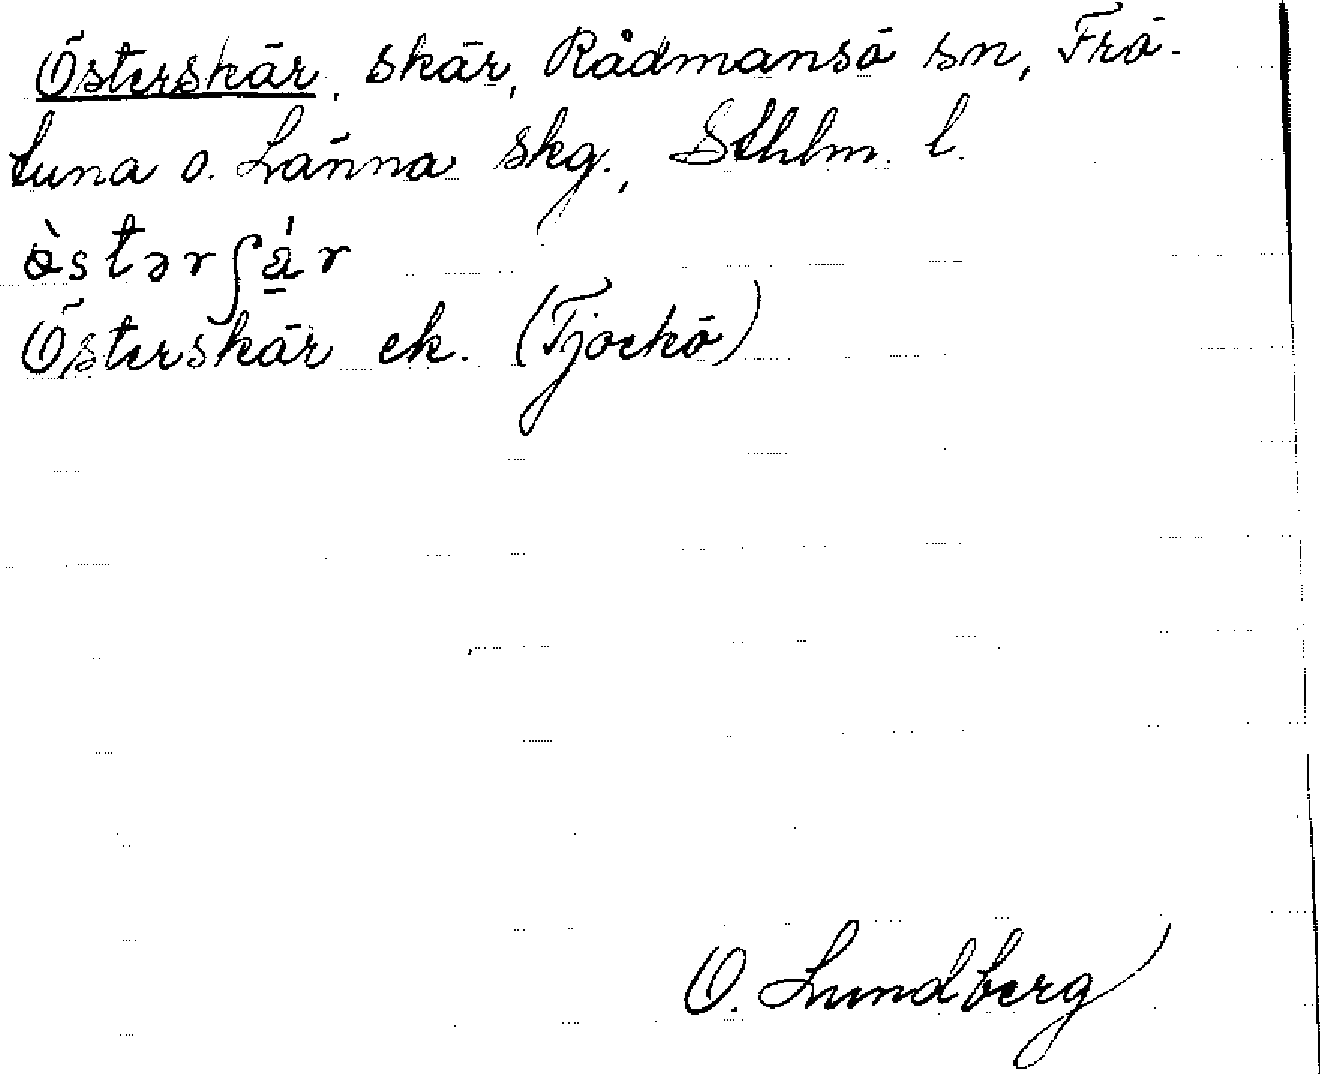 Österskär, skär, Rådmansö sn, Frö-
tuna o. Länna skg., Sthlm. l.
ö̀stərʃä̱́r
Österskär ek. (Tjockö)
O. Lundberg